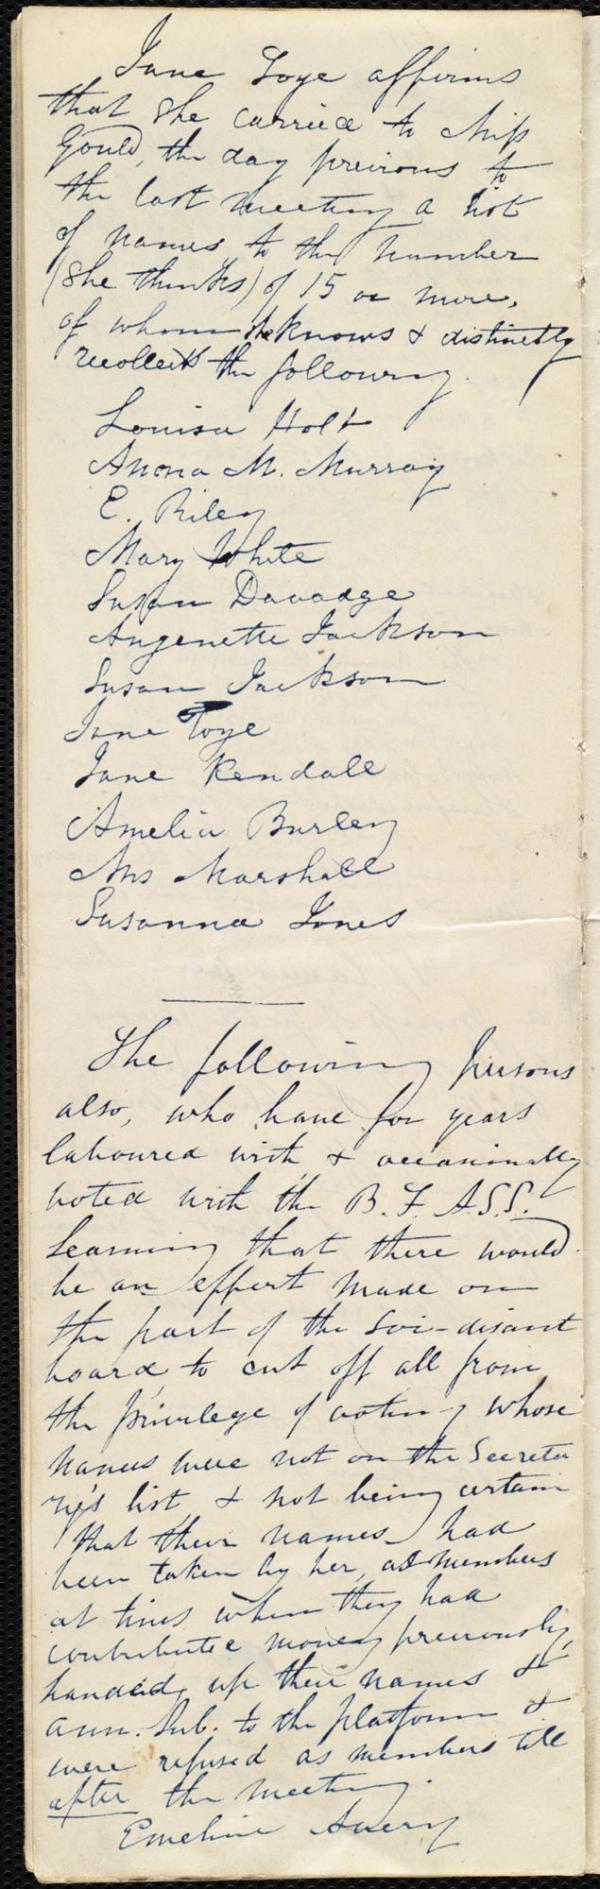 Jane Toye affirms
that she carried to Miss
Gould, the day previous to
the last meeting a list
of names to the number
(she thinks) of 15 or more,
of whom she knows & distinctly
recollects the following.
Louisa Holt
Anona M. Murray
E. Riley
Mary White
Susan Davadge
Angenette Jackson
Susan Jackson
Jane Toye
Jane Kendall
Amelia Burley
Mrs Marshall
Susanna Jones
The following persons
also, who have for years
laboured with & occasionally
voted with the B. F. A.S.S.
learning that there would
be an effort made on
the part of the soi-disant
board, to cut off all from
the privilege of voting whose
names were not on the Secreta
ry's list, & not being certain
that their names had
been taken by her, as members
at times when they had
contributed money previously,
handed, up their names &
ann. Sub. to the platform &
were refused as members till
after the meeting.
Emeline Avery